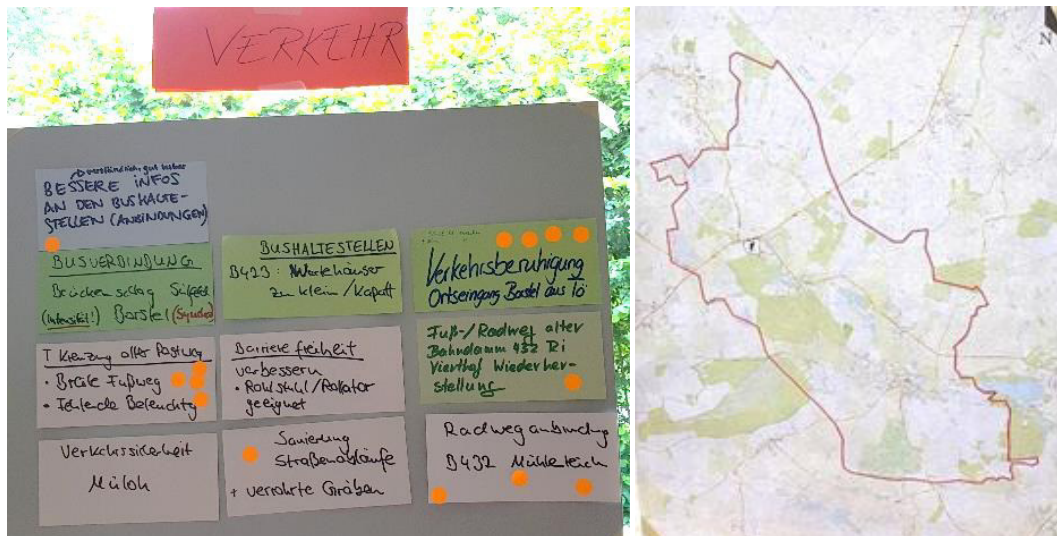 VERKEHR
verständlich, gut lesbar
BESSERE INFOS
AN DEN BUSHALTE-
STELLEN (ANBINDUNGEN)
BUSVERBINDUNG
Brückenschlag Sülfeld
(Intensität!) Borstel
BUSHALTESTELLEN
B423: Wartehäuser
zu klein/Kaputt
Verkehrsberuhigung
Ortseingang Borstel aus
T Kreuzung alter Postweg
• Breite Fußweg
• Fehlende Beleuchtg
Barriere freiheit
verbessern
• Rollstuhl/Rollator
geeignet
Fuß-/Radweg alter
Bahndamm 432 Ri
Vierthof Wiederher-
stellung
Verkehrssicherheit
Sanierung
Straßenabläufe
+ verrohrte Gräben
Radweg anbindung
B432 Mühlenteich
N